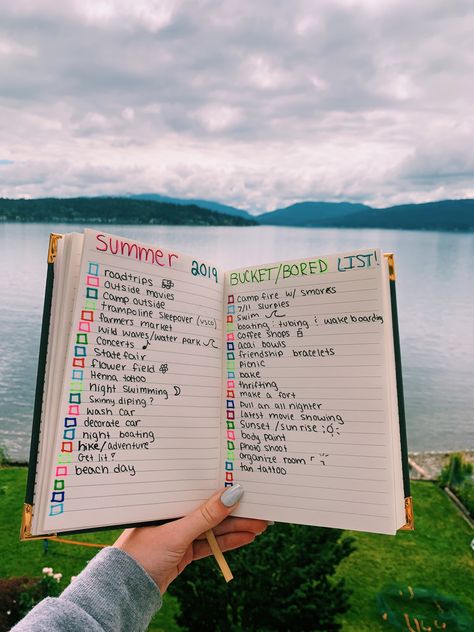 Summer 2019
roadtrips
outside movies
camp outside
trampoline sleepover (vsco)
farmers market
wild waves/water park
concerts
state fair
flower field
Henna tattoo
night swimming
skinny diping?
wash car
decorate car
night boating
hike/adventure
Get lit?
beach day
BUCKET/BORED LIST!
camp fire w/ smores
7/11 slurpies
swim
boating; tubing; wake boarding
coffee shops
acai bowls
friendship bracelets
picnic
bake
thrifting
make a fort
pull an all nighter
latest movie showing
sunset/sunrise
body paint
photo shoot
organize room
tan tattoo